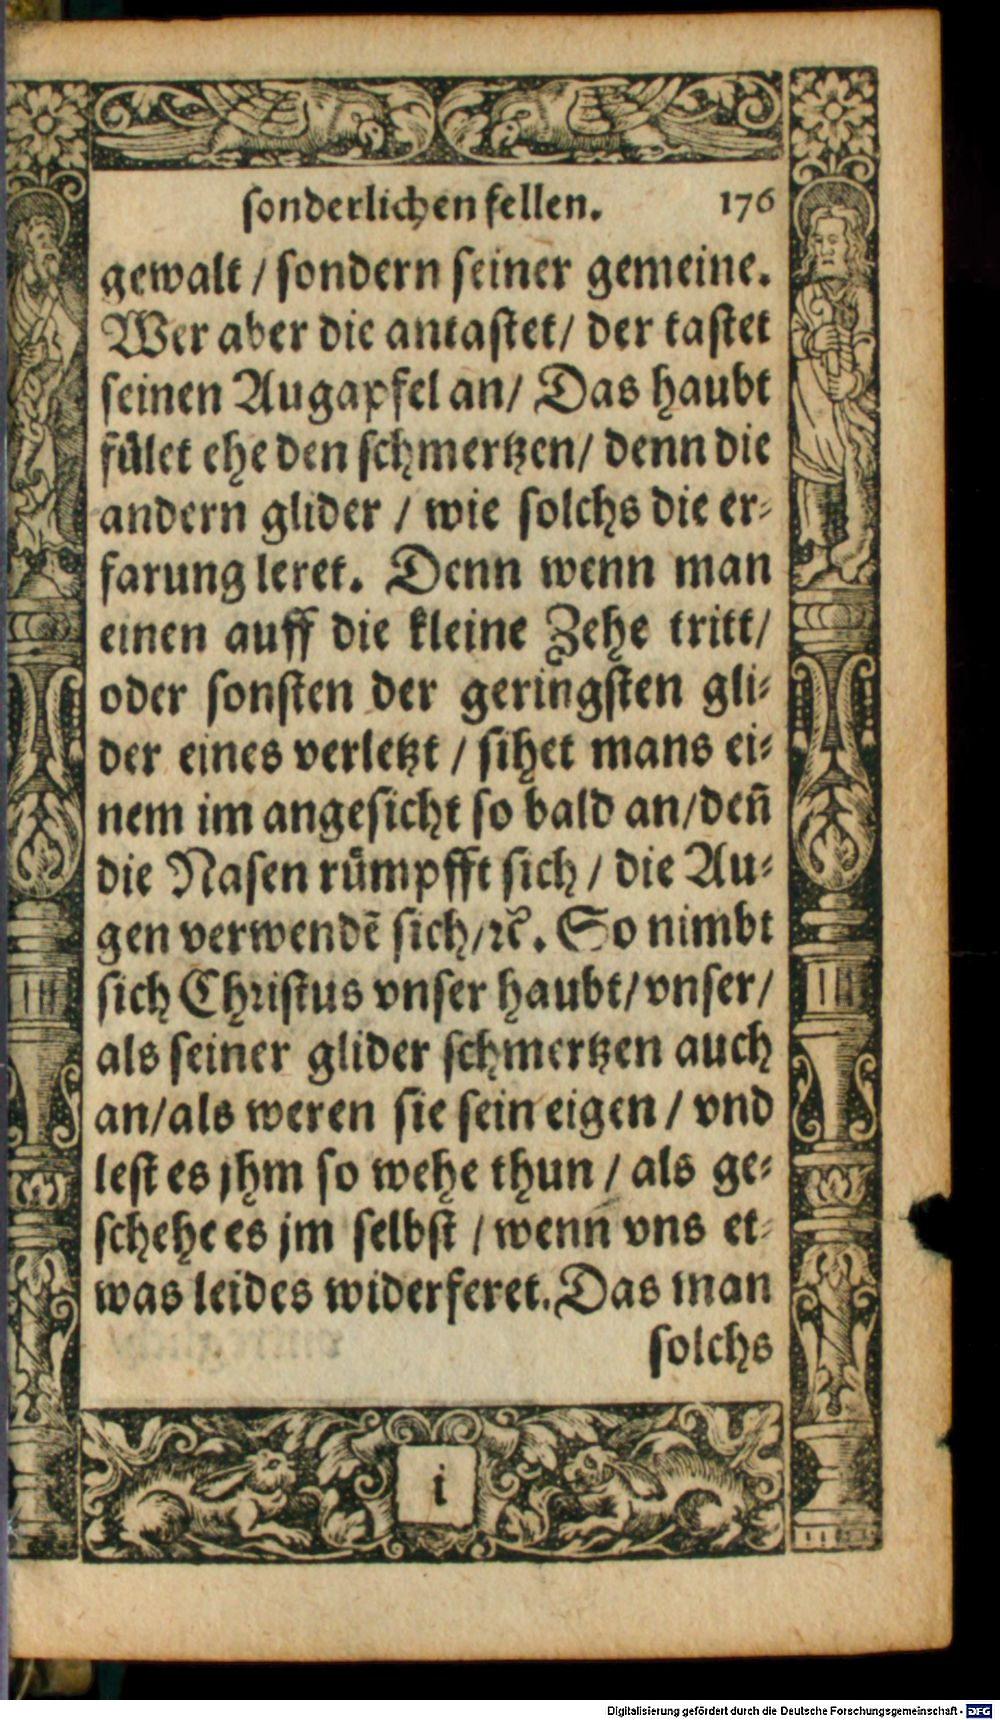 sonderlichen fellen. 176
gewalt / sondern seiner gemeine.
Wer aber die antastet / der tastet
seinen Augapfel an / Das haubt
fület ehe den schmertzen / denn die
andern glider / wie solchs die er⸗
farung leret. Denn wenn man
einen auff die kleine Zehe tritt /
oder sonsten der geringsten gli⸗
der eines verletzt / sihet mans ei⸗
nem im angesicht so bald an / deñ
die Nasen rümpfft sich / die Au⸗
gen verwendẽ sich / ꝛc̃. So nimbt
sich Christus vnser haubt / vnser /
als seiner glider schmertzen auch
an / als weren sie sein eigen / vnd
lest es jhm so wehe thun / als ge⸗
schehe es jm selbst / wenn vns et⸗
was leides widerferet. Das man
solchs
i
Digitalisierung gefördert durch die Deutsche Forschungsgemeinschaft - DFG